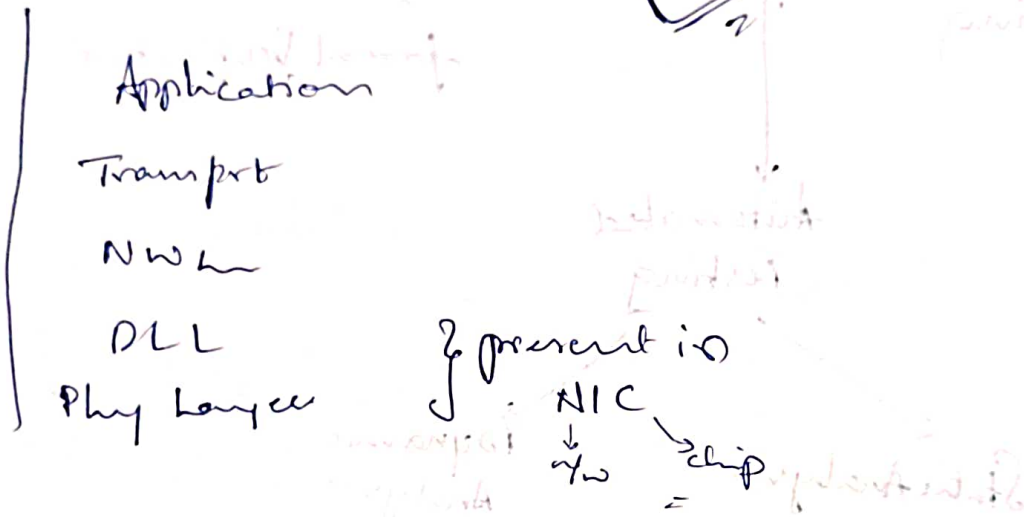 Application
Transprt
NWL
DLL
Phy Layer
} present in
NIC
↓ ↘
n/w chip